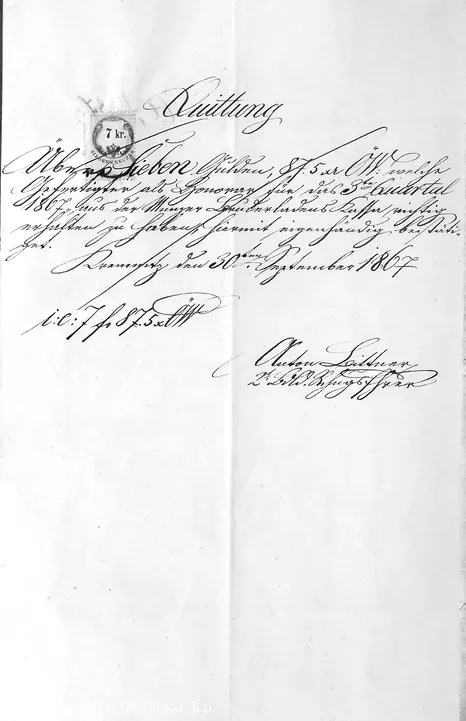 Quittung
7 kr.
Über Sieben Gulden, 87.5 xr ÖW: welche
Gefertigter als Honorar für das 3te Quartal
1867, aus der Münzer Bruderladens Kassa richtig
erhalten zu haben hiermit eigenhändig bestäti-
get.
Kremnitz den 30ten September 1867
i:e: 7 fr 87.5 xr ÖW
Anton Bittner
Kremnica B.p.